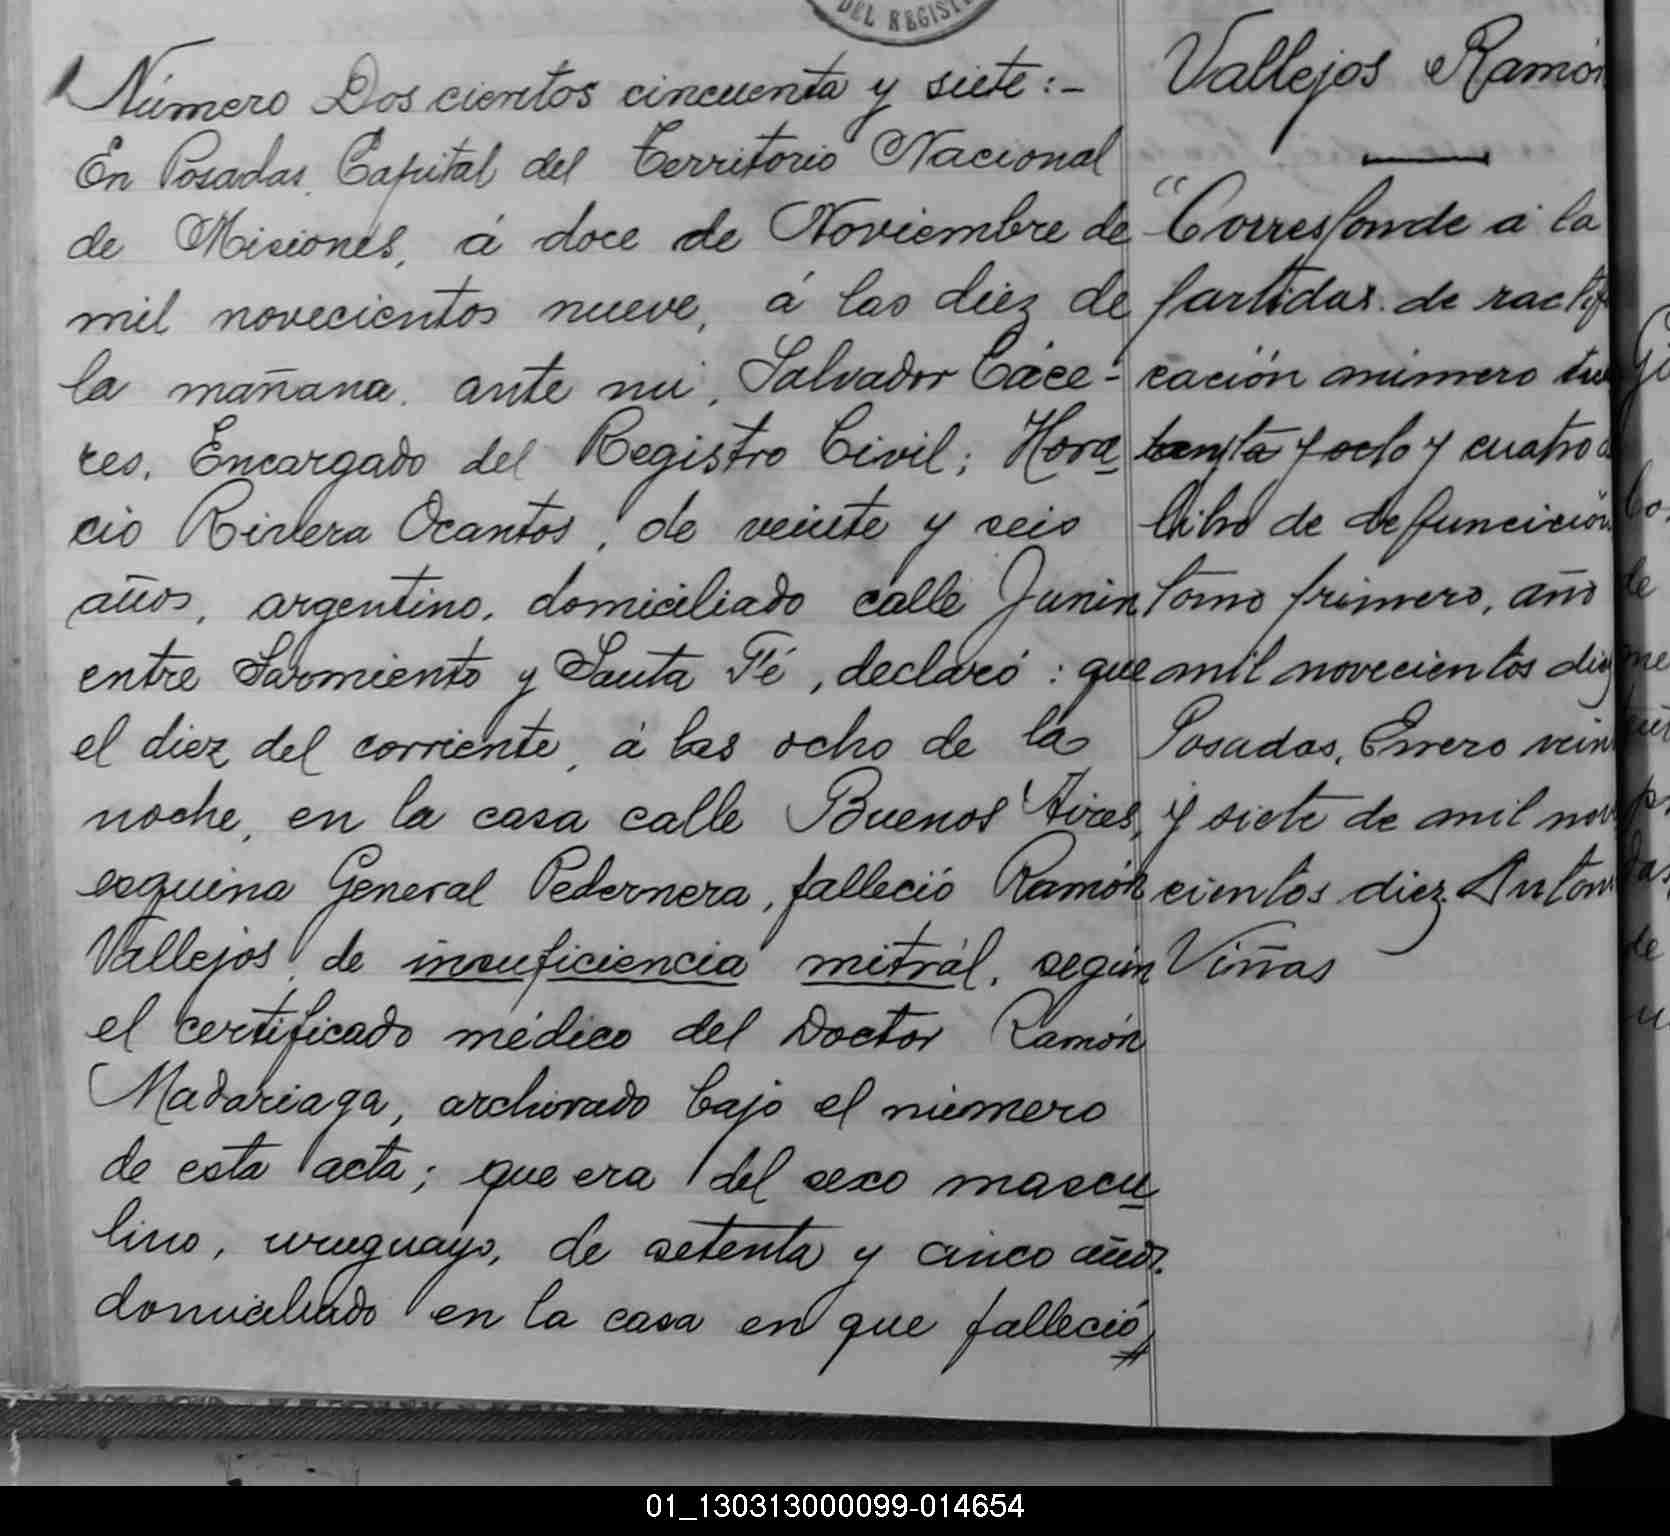 DEL REGIST
Número Dos cientos cincuenta y siete:-
En Posadas, Capital del Territorio Nacional
de Misiones, á doce de Noviembre de
mil novecientos nueve, á las diez de
la mañana, ante mi, Salvador Cáce-
res, Encargado del Registro Civil; Hora
cio Rivera Ocantos, de veinte y seis
años, argentino, domiciliado calle Junin
entre Sarmiento y Santa Fé, declaró: que
el diez del corriente, á las ocho de la
noche, en la casa calle Buenos Aires,
esquina General Pedernera, falleció Ramón
Vallejos, de insuficiencia mitrál, según
el certificado médico del Doctor Ramón
Madariaga, archivado bajo el número
de esta acta; que era del sexo mascu
lino, uruguayo, de setenta y cinco años,
domiciliado en la casa en que falleció,
Vallejos Ramón
"Corresponde á la
partidas de ractifi
cación número
y octo y cuatro
libro de defuncición
tomo primero, año
mil novecientos diez
Posadas, Enero vein
y siete de mil nov
cientos diez. Anton
Viñas
01_130313000099-014654